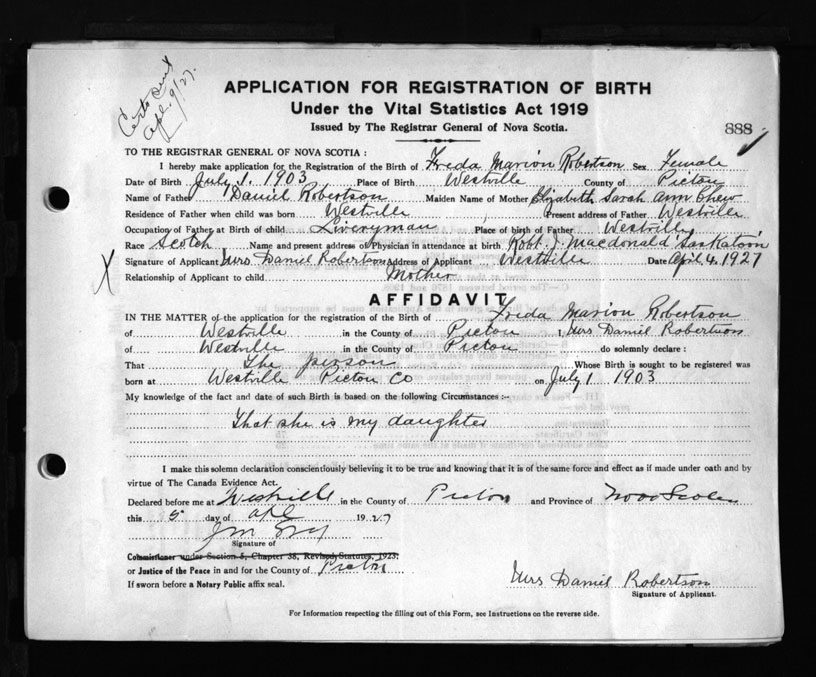 Certs sent
Apl. 9/27.
APPLICATION FOR REGISTRATION OF BIRTH
Under the Vital Statistics Act 1919
Issued by The Registrar General of Nova Scotia.
888
TO THE REGISTRAR GENERAL OF NOVA SCOTIA :
I hereby make application for the Registration of the Birth of Freda Marion Robertson Sex Female
Date of Birth July 1. 1903 Place of Birth Westville County of Pictou
Name of Father Daniel Robertson Maiden Name of Mother Elizabeth Sarah Ann Chew
Residence of Father when child was born Westville Present address of Father Westville
Occupation of Father at Birth of child Liveryman Place of birth of Father Westville
Race Scotch Name and present address of Physician in attendance at birth Robt. J. Macdonald Saskatoon
Signature of Applicant Mrs Daniel Robertson Address of Applicant Westville Date April 4. 1927
Relationship of Applicant to child Mother
X
AFFIDAVIT
IN THE MATTER of the application for the registration of the Birth of Freda Marion Robertson
of Westville in the County of Pictou I, Mrs Daniel Robertson
of Westville in the County of Pictou do solemnly declare :
That The person Whose Birth is sought to be registered was
born at Westville Pictou Co on July 1 1903
My knowledge of the fact and date of such Birth is based on the following Circumstances :-
That she is my daughter
I make this solemn declaration conscientiously believing it to be true and knowing that it is of the same force and effect as if made under oath and by
virtue of The Canada Evidence Act.
Declared before me at Westville in the County of Pictou and Province of Nova Scotia
this 5 day of Apl 1927
Signature of
Commissioner under Section 5, Chapter 38, Revised Statutes, 1923.
or Justice of the Peace in and for the County of Pictou
If sworn before a Notary Public affix seal.
Mrs Daniel Robertson
Signature of Applicant.
For Information respecting the filling out of this Form, see Instructions on the reverse side.